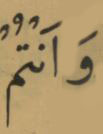 وَ اَنْتُمْ